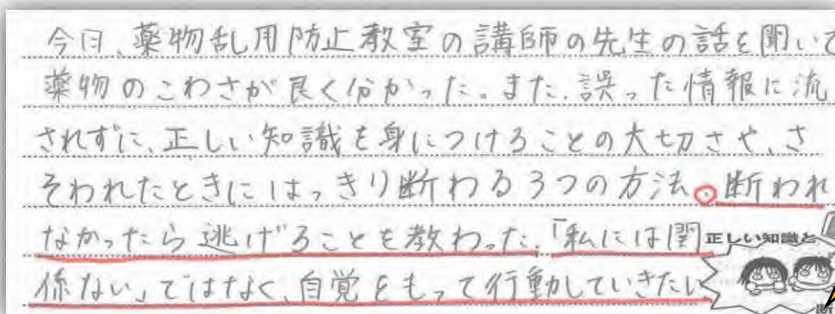 今日、薬物乱用防止教室の講師の先生の話を聞いて
薬物のこわさが良く分かった。また、誤った情報に流
されずに、正しい知識を身につけることの大切さや、さ
そわれたときにはっきり断わる3つの方法。断われ
なかったら逃げることを教わった。「私には関
係ない」ではなく、自覚をもって行動していきたい
正しい知識と